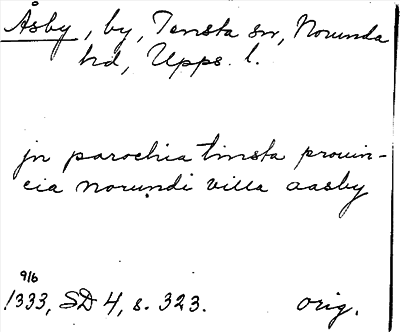 Åsby, by, Tensta sn, Norunda
hd, Upps. l.
jn parochia timsta prouin-
cia norundi villa aasby
9/6
1333, SD 4, s. 323. orig.